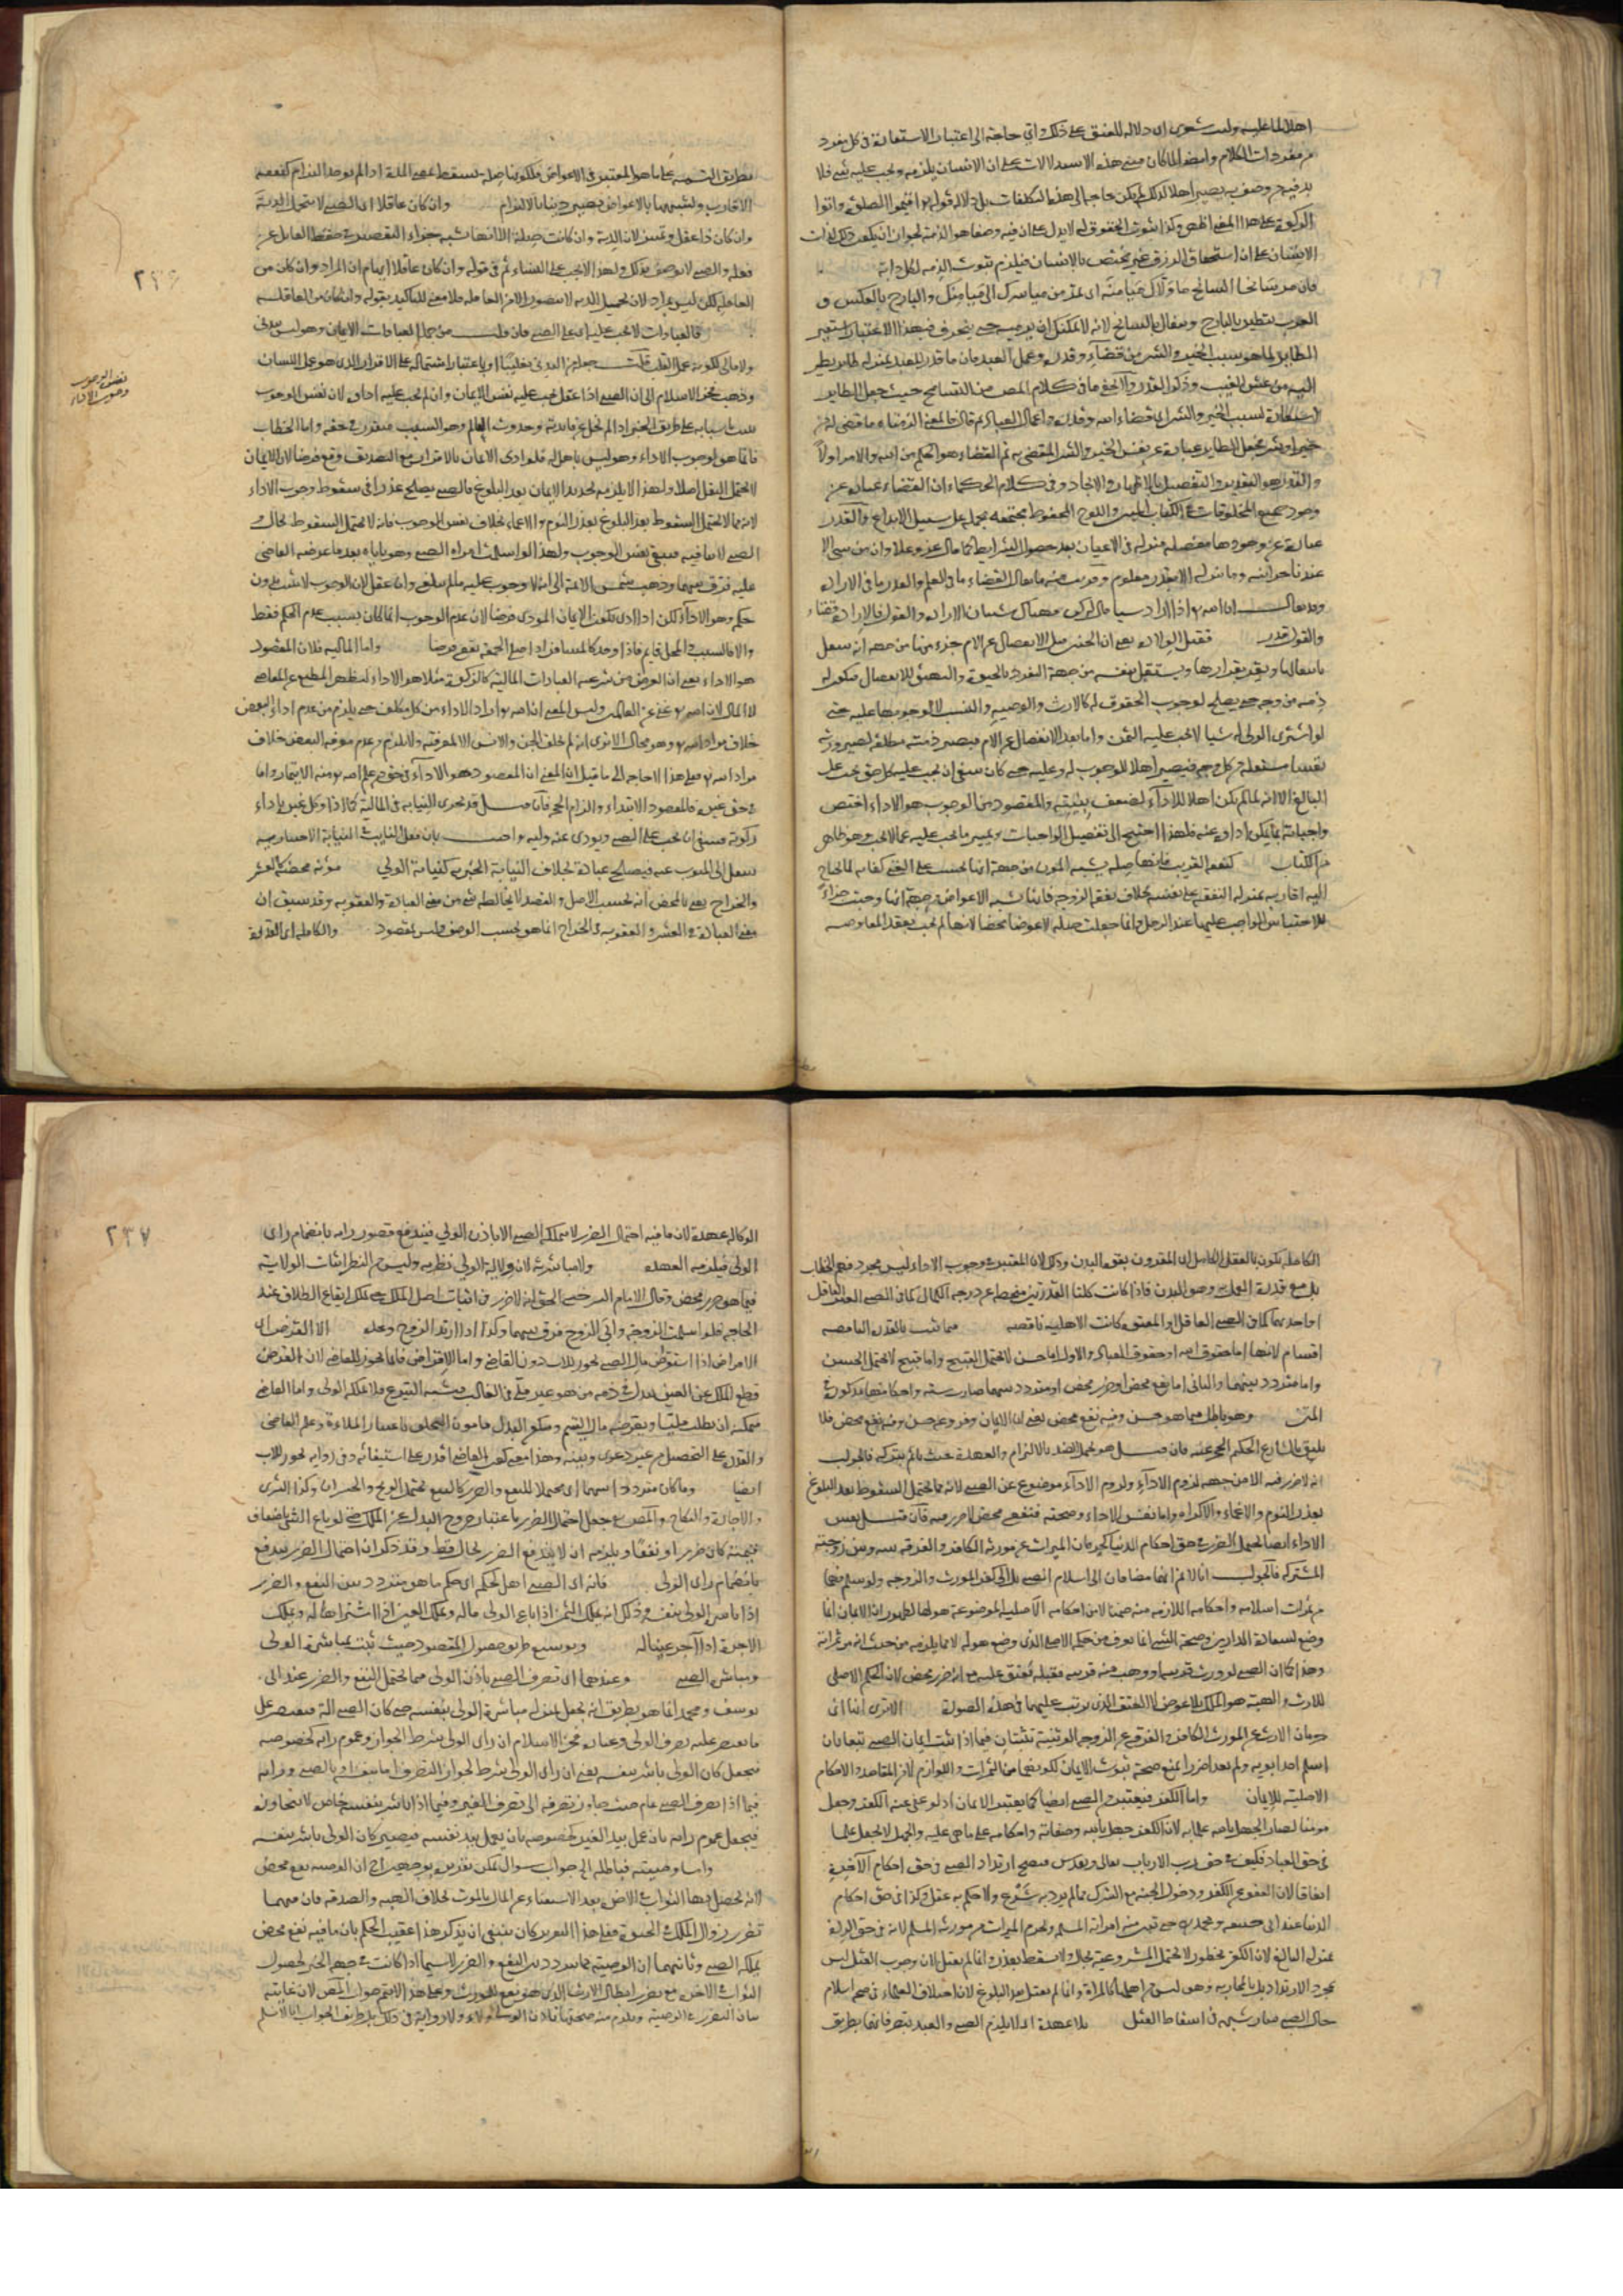 اهلا لما عليه وليت شعرى اى دلالة للعنق على ذلك واى حاجة الى اعتبار الاستعارة فى كل مفرد
من مفردات الكلام وايضا لما كان مبنى هذه الاستدلالات على ان الانسان يلزمه ويجب عليه شئ فلا
بد فيه من وصف به يصير اهلا لذلك لم يكن حاجة الى هذه التكلفات بل دلالة قوله تع اقيموا الصلوة واتوا
الزكوة على هذا المعنى اظهر وكذا ثبوت الحقوق له لا يدل على ان فيه وصفا هو الذمة لجواز ان يكون ذلك لذات
الانسان على ان استحقاق الرزق غير مختص بالانسان فيلزم ثبوت الذمة لكل دابة
فان مر سانحا السانح ما ولاك ميامنه اى يمر من مياسرك الى ميامنك والبارح بالعكس و
العرب تتطير بالبارح وتتفال بالسانح لانه لا يمكنك ان ترميه حتى ينحرف فبهذا الاعتبار استعير
الطاير لما هو سبب الخير والشر من قضاء الله وقدره وعمل العبد فان ما قدر للعبد بمنزلة طاير يطير
اليه من عش الغيب ووكر القدر ولا يخفى ما فى كلام المص من التسامح حيث جعل الطاير
استعارة لسبب الخير والشر اى قضاء الله وقدره واعمال العباد ثم قال فالمعنى الزمناه ما قضى له من
خير او شر فجعل الطاير عبارة عن نفس الخير والشر المقضى به ثم القضاء هو الحكم من الله والامر اولا
والقدر هو التقدير والتفصيل بالاظهار والايجاد وفى كلام الحكماء ان القضاء عبارة عن
وجود جميع المخلوقات فى الكتاب المبين واللوح المحفوظ مجتمعة مجملة على سبيل الابداع والقدر
عبارة عن وجودها مفصلة منزلة فى الاعيان بعد حصول الشرايط كما قال عز وعلا وان من شئ الا
عندنا خزاينه وما ننزله الا بقدر معلوم وقريب منه ما يقال القضاء ما فى العلم والقدر ما فى الارادة
وقد يقال ان الله تع اذا اراد شيا قال له كن فهناك شيان الارادة والقول فالارادة قضاء
والقول قدر فقبل الولادة يعنى ان الجنين قبل الانفصال عن الام جزء منها من جهة انه ينتقل
بانتقالها ويقر بقرارها ويستقل بنفسه من جهة التفرد بالحيوة والتهيئ للانفصال فيكون له
ذمة من وجه حتى يصلح لوجوب الحقوق له كالارث والوصية والنسب لا لوجوبها عليه حتى
لو اشترى الولى له شيا لا يجب عليه الثمن واما بعد الانفصال عن الام فيصير ذمته مطلقة لصيرورته
نفسا مستقلة من كل وجه فيصير اهلا للوجوب له وعليه حتى كان ينبغى ان يجب عليه كل حق يجب على
البالغ الا انه لما لم يكن اهلا للاداء لضعف بنيته والمقصود من الوجوب هو الاداء اختص
واجباته بما يمكن اداؤه عنه فلهذا احتيج الى تفصيل الواجبات وتمييز ما يجب عليه عما لا يجب وهو ظاهر
من الكتاب كنفقة القريب فانها صلة يشبه المؤن من جهة انها تجب على الغنى كفاية لما يحتاج
اليه اقاربه بمنزلة النفقة على نفسه بخلاف نفقة الزوجة فانها تشبه الاعواض من جهة انها وجبت جزاء
للاحتباس الواجب عليها عند الرجل وانما جعلت صلة لا عوضا محضا لانها لم تجب بعقد المعاوضة
بطريق التسمية على ما هو المعتبر فى الاعواض فلكونها صلة تسقط بمضى المدة اذا لم يوجد التزام كنفقة
الاقارب ولشبهها بالاعواض تصير دينا بالالتزام وان كان عاقلا اى الصبى لا يتحمل الدية
وان كان ذا عقل وتمييز لان الدية وان كانت صلة الا انها تشبه جزاء التقصير فى حفظ القاتل عن
فعله والصبى لا يوصف بذلك ولهذا لا يجب على النساء ثم فى قوله وان كان عاقلا ايهام ان المراد وان كان من
العاقلة لكن ليس بمراد لان تحميل الدية لا يتصور الا من العاقلة فلا معنى للتاكيد بقوله وان كان من العاقلة
فالعبادات لا تجب عليه اى على الصبى فان قلت من جملة العبادات الايمان وهو ليس ببدنى
ولا مالى لكونه عمل القلب قلت جعله من البدنى تغليبا او باعتبار اشتماله على الاقرار الذى هو عمل اللسان
وذهب فخر الاسلام الى ان الصبى اذا عقل يجب عليه نفس الايمان وان لم يجب عليه اداؤه لان نفس الوجوب
يثبت باسبابه على طريق الجبر اذا لم يخل عن فايدته وحدوث العالم وهو السبب متقرر فى حقه واما الخطاب
فانما هو لوجوب الاداء وهو ليس باهل له فلو ادى الايمان بالاقرار مع التصديق وقع فرضا لان الايمان
لا يحتمل النفل اصلا ولهذا لا يلزمه تجديد الايمان بعد البلوغ فالصبى يصلح عذرا فى سقوط وجوب الاداء
لانه مما لا يحتمل السقوط بعد البلوغ بعذر النوم والاغماء بخلاف نفس الوجوب فانه لا يحتمل السقوط بحال و
الصبى لا ينافيه فيبقى نفس الوجوب ولهذا لو اسلمت امراة الصبى وهو ياباه بعد ما عرضه القاضى
عليه فرق بينهما وذهب شمس الائمة الى انه لا وجوب عليه ما لم يبلغ وان عقل لان الوجوب لا يثبت بدون
حكمه وهو الاداء لكن اذا ادى يكون الايمان المودى فرضا لان عدم الوجوب انما كان بسبب عدم الحكم فقط
والا فالسبب والمحل قايم فاذا وجد كالمسافر اذا صلى الجمعة تقع فرضا واما المالية فلان المقصود
هو الاداء يعنى ان الغرض من شرعية العبادات المالية كالزكوة مثلا هو الاداء ليظهر المطيع عن العاصى
لا المال لان الله تع غنى عن العالمين وليس المعنى ان الله تع اراد الاداء من كل مكلف حتى يلزم من عدم اداء البعض
خلاف مراد الله تع وهو محال الا ترى انه لم يخلق الجن والانس الا لمعرفته ولا يلزم من عدم معرفة البعض خلاف
مراد الله تع فعلى هذا لا حاجة الى ما قيل ان المعنى ان المقصود هو الاداء فى حق من علم الله تع منه الايتمار واما
فى حق غيره فالمقصود الابتلاء والزام الحجة فان قيل قد تجرى النيابة فى المالية كما اذا وكل غيره باداء
زكوته فينبغى ان تجب على الصبى ويودى عنه وليه واجيب بان فعل النايب فى النيابة الاختيارية
ينتقل الى المنوب عنه فيصلح عبادة بخلاف النيابة الجبرية كنيابة الولى مؤنة محضة كالعشر
والخراج يعنى بالمحض انه بحسب الاصل والقصد لا يخالطه شئ من معنى العبادة والعقوبة وقد سبق ان
معنى العبادة فى العشر والعقوبة فى الخراج انما هو بحسب الوصف وليس بمقصود والكاملة اى القدرة
نفس الوجوب
وجوب الاداء
٢٣٦
الكاملة تكون بالعقل الكامل اى المقرون بقوة البدن وذلك لان المعتبر فى وجوب الاداء ليس مجرد فهم الخطاب
بل مع قدرة العمل به وهو بالبدن فاذا كانت كلتا القدرتين منحطة عن درجة الكمال كما فى الصبى الغير العاقل
او احديهما كما فى الصبى العاقل او المعتوه كانت الاهلية ناقصة فما ثبت بالقدرة القاصرة
اقسام لانها اما حقوق الله او حقوق العباد والاول اما حسن لا يحتمل القبيح واما قبيح لا يحتمل الحسن
واما متردد بينهما والثانى اما نفع محض او ضرر محض او متردد بينهما صارت ستة واحكامها مذكورة فى
المتن وهو باطل فيما هو حسن وفيه نفع محض يعنى ان الايمان وفروعه حسن وفيه نفع محض فلا
يليق بالشارع الحكيم الحجر عنه فان قيل هو يحتمل الضرر بالالتزام والعهدة حيث ياثم بتركه فالجواب
انه لا ضرر فيه الا من جهة لزوم الاداء ولزوم الاداء موضوع عن الصبى لانه مما يحتمل السقوط بعد البلوغ
بعذر النوم والاغماء والاكراه واما نفس الاداء وصحته فنفعه محض لا ضرر فيه فان قيل نفس
الاداء ايضا يحتمل الضرر فى حق احكام الدنيا كحرمان الميراث عن مورثه الكافر والفرقة بينه وبين زوجته
المشركة فالجواب انا لا نم انهما مضافان الى اسلام الصبى بل الى كفر المورث والزوجة ولو سلم فهما
من ثمرات اسلامه واحكامه اللازمة منه ضمنا لا من احكامه الاصلية الموضوعة هو لها لظهور ان الايمان انما
وضع لسعادة الدارين وصحة الشئ انما يعرف من حكمه الاصلى الذى وضع هو له لا مما يلزمه من حيث انه من ثمراته
وهذا كما ان الصبى لو ورث قريبه او وهب منه قريبه فقبله يعتق عليه مع انه ضرر محض لان الحكم الاصلى
للارث والهبة هو الملك بلا عوض لا العتق الذى ترتب عليهما فى هذه الصورة الا ترى انهما اى
حرمان الارث عن المورث الكافر والفرقة عن الزوجة الوثنية يثبتان فيما اذا ثبت ايمان الصبى تبعا بان
اسلم احد ابويه ولم يعد ضررا يمنع صحة ثبوت الايمان لكونهما من الثمرات واللوازم لا من المقاصد والاحكام
الاصلية للايمان واما الكفر فيعتبر من الصبى ايضا كما يعتبر الايمان اذ لو عفى عنه الكفر وجعل
مومنا لصار الجهل بالله علما به لان الكفر جهل بالله وصفاته واحكامه على ما هى عليه والجهل لا يجعل علما
فى حق العباد فكيف فى حق رب الارباب تعالى وتقدس فيصح ارتداد الصبى فى حق احكام الآخرة
اتفاقا لان العفو عن الكفر ودخول الجنة مع الشرك مما لم يرد به شرع ولا حكم به عقل وكذا فى حق احكام
الدنيا عند ابى حنيفة ومحمد ره حتى تبين منه امراته المسلمة ويحرم الميراث من مورثه المسلم لانه فى حق الردة
بمنزلة البالغ لان الكفر محظور لا يحتمل المشروعية بحال ولا يسقط بعذر وانما لم يقتل لان وجوب القتل ليس
بمجرد الارتداد بل بالمحاربة وهو ليس من اهلها كالمراة وانما لم يقتل بعد البلوغ لان اختلاف العلماء فى صحة اسلام
حال الصبى صار شبهة فى اسقاط القتل بلا عهدة اى لا يلزم الصبى والعبد بتصرفاتهما بطريق
الوكالة عهدة لان ما فيه احتمال الضرر لا يتملكه الصبى الا باذن الولى فيندفع قصور رايه بانضمام راى
الولى فيلزمه العهدة ولا مباشرته لان ولاية الولى نظرية وليس من النظر اثبات الولاية
فيما هو ضرر محض وقال الامام السرخسى الحق انه لا ضرر فى اثبات اصل الملك حتى يملك ايقاع الطلاق عند
الحاجة فلو اسلمت الزوجة وابى الزوج فرق بينهما وكذا اذا ارتد الزوج وحده الا القرض اى
الاقراض اذ استقراض مال الصبى يجوز للاب دون القاضى واما الاقراض فانما يجوز للقاضى لان القرض
قطع الملك عن العين ببدل فى ذمة من هو غير ملى فى الغالب فيشبه التبرع فلا يملكه الولى واما القاضى
فيمكنه ان يطلب مليا ويقرضه مال اليتيم ويكون البدل مامون التلف باعتبار الملاءة وعلم القاضى
والقدرة على التحصيل من غير دعوى وبينة وهذا معنى كون القاضى اقدر على استيفائه وفى رواية يجوز للاب
ايضا وما كان مترددا بينهما اى محتملا للنفع والضرر كالبيع يحتمل الربح والخسران وكذا الشرى
والاجارة والنكاح والمص جعل احتمال الضرر باعتبار خروج البدل عن الملك حتى لو باع الشئ باضعاف
قيمته كان ضررا ونفعا ويلزمه ان لا يندفع الضرر بحال قط وقد ذكر ان احتمال الضرر يندفع
بانضمام راى الولى فانه اى الصبى اهل لحكمه اى حكم ما هو متردد بين النفع والضرر
اذا باشر الولى بنفسه وذلك انه يملك الثمن اذا باع الولى ماله ويملك العين اذا اشتراها له ويملك
الاجرة اذا آجر عينا له وتوسيع طريق حصول المقصود حيث ثبت بمباشرة الولى
ومباشرة الصبى وعندهما اى تصرف الصبى باذن الولى فيما يحتمل النفع والضرر عند ابى
يوسف ومحمد انما هو بطريق انه يجعل بمنزلة مباشرة الولى بنفسه حتى كان الصبى آلة فيقتصر على
ما يقتصر عليه تصرف الولى وعبارة فخر الاسلام ان راى الولى شرط الجواز وعموم رايه كخصوصه
فيجعل كان الولى باشر بنفسه يعنى ان راى الولى شرط لجواز التصرف اما بنفسه او بالصبى ورايه
فيما اذا تصرف الصبى عام حيث جاوز تصرفه الى تصرف الغير وفيما اذا باشر بنفسه خاص لا يتجاوزه
فيجعل عموم رايه بان عمل بيد الغير كخصوصه بان يعمل بيد نفسه فيصير كان الولى باشر بنفسه
واما وصيته فباطلة الى جواب سوال يمكن تقريره بوجهين اح ان الوصية نفع محض
لانه يحصل بها الثواب فى الآخرة بعد الاستغناء عن المال بالموت بخلاف الهبة والصدقة فان فيهما
تضرر زوال الملك فى الحيوة فعلى هذا التقرير كان ينبغى ان يذكر هذا عقيب الحكم بان ما فيه نفع محض
يملكه الصبى وثانيهما ان الوصية مما يتردد بين النفع والضرر لاسيما اذا كانت فى جهة الخير لحصول
الثواب فى الآخرة مع تضرر ابطال الارث الذى هو نفع للمورث وعلى هذا لا يتم جواب المص لان غايته
بيان التضرر فى الوصية ويلزم منه صحتها باذن الولى ولا رواية فى ذلك بل طريق الجواب انا لا نسلم
٢٣٧